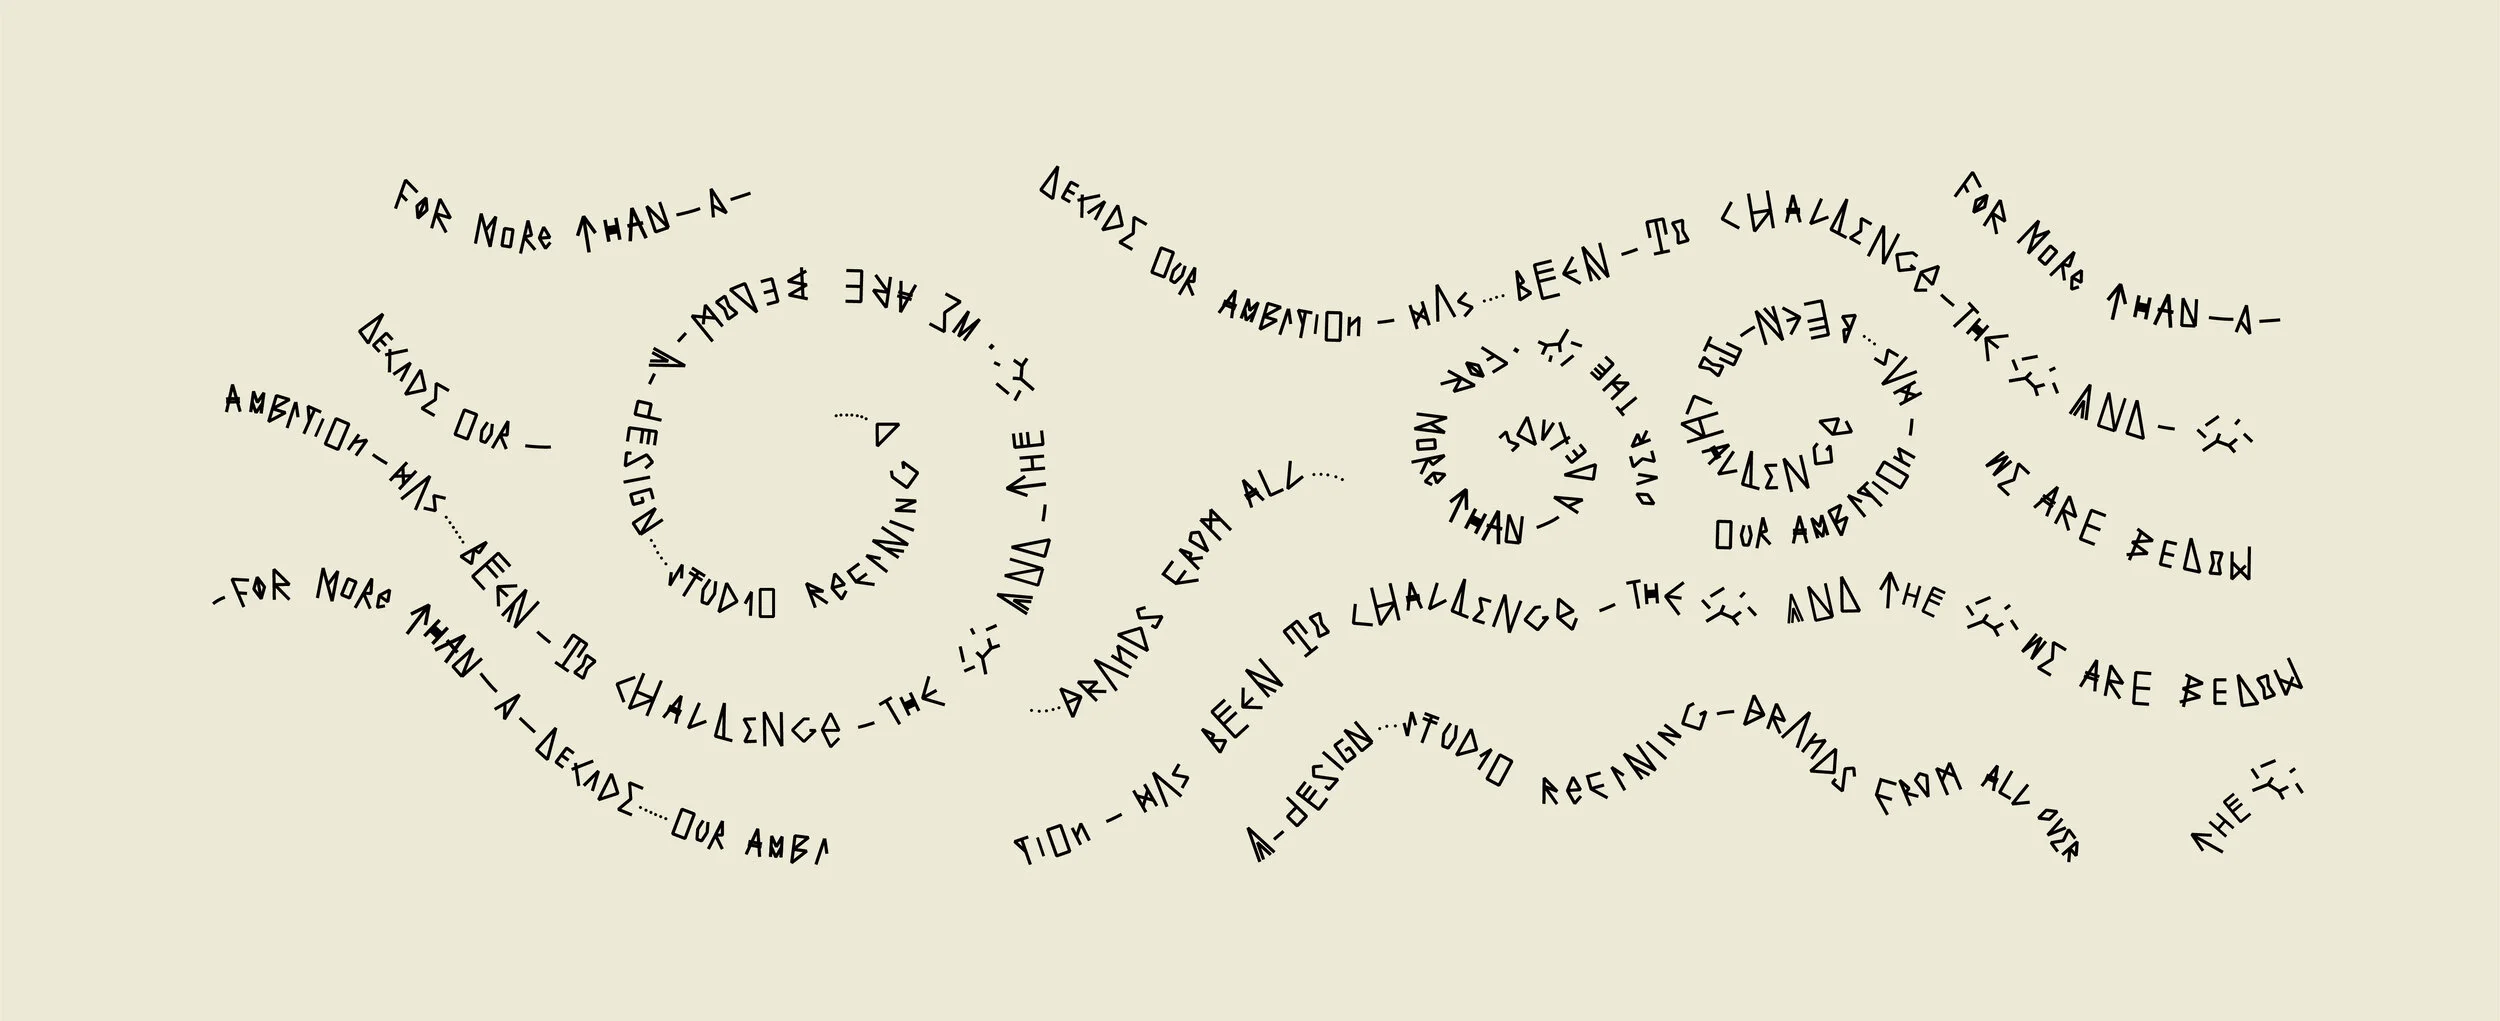 FOR MORE THAN — A —
DECADE OUR AMBITION — HAS ..... BEEN — TO CHALLENGE — THE AND —
FOR MORE THAN — A —
DECADE OUR —
AMBITION — HAS ...... BEEN — TO CHALLENGE — THE AND — THE . WE ARE BEDOW — A — DESIGN ...... STUDIO REFINING
— FOR MORE THAN — A — DECADE ...... OUR AMBI
OVER THE . FOR MORE THAN — A DECADE
OUR AMBITION — HAS .... BEEN — TO CHALLENGE
WE ARE BEDOW
...... BRANDS FROM ALL ......
TION — HAS BEEN TO CHALLENGE — THE AND THE WE ARE BEDOW
A — DESIGN .... STUDIO REFINING — BRANDS FROM ALL OVER
THE